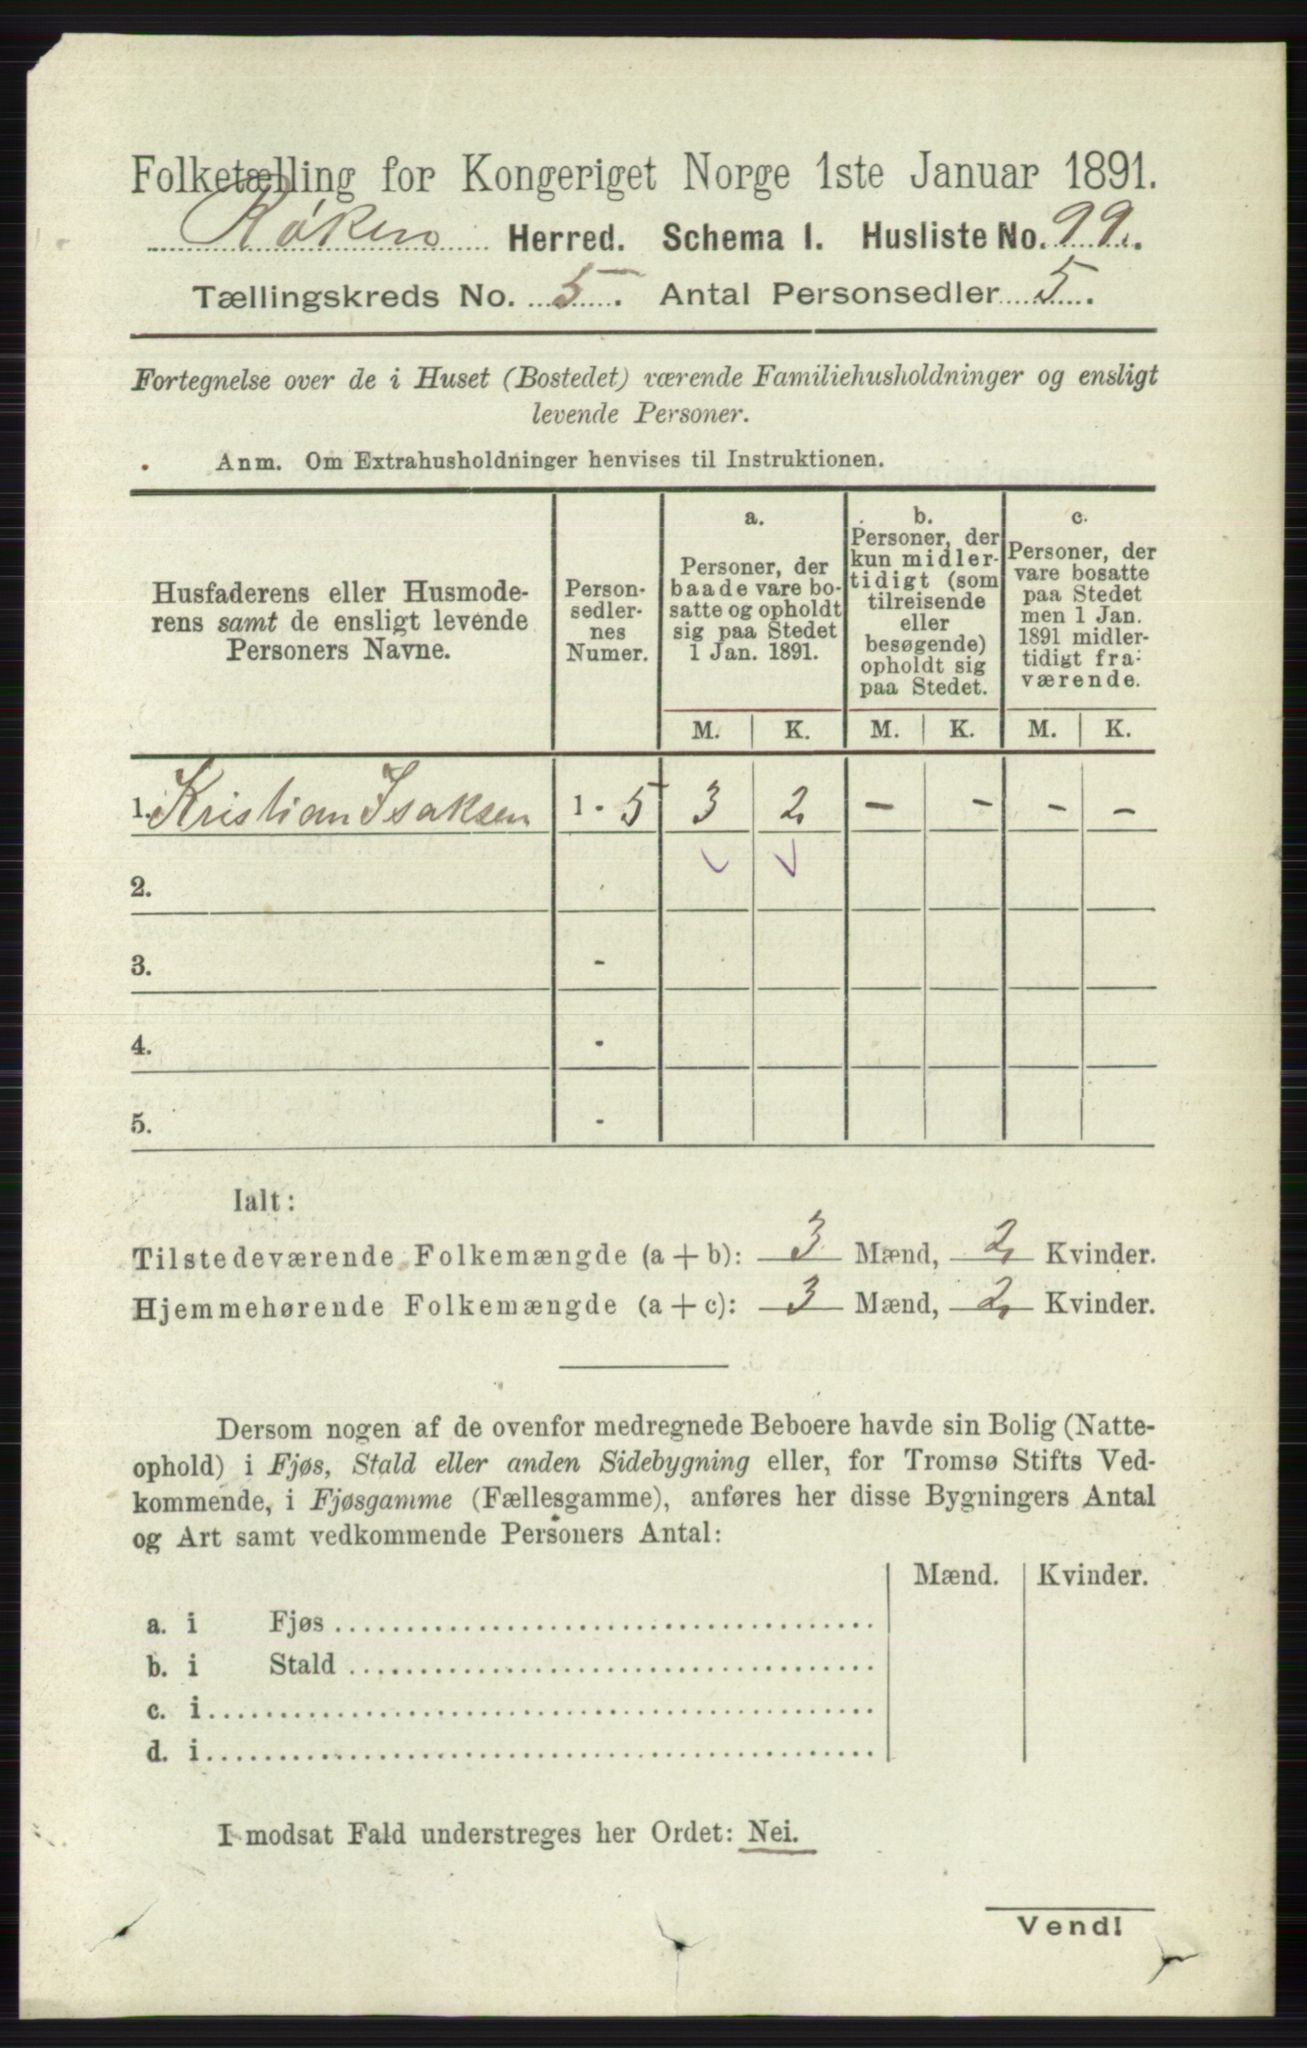 Folketælling for Kongeriget Norge 1ste Januar 1891.
Røken Herred. Schema 1. Husliste No. 99.
Tællingskreds No. 5. Antal Personsedler 5.
Fortegnelse over de i Huset (Bostedet) værende Familiehusholdninger og ensligt
levende Personer.
Anm. Om Extrahusholdninger henvises til Instruktionen.
Husfaderens eller Husmode-
rens samt de ensligt levende
Personers Navne.
Person-
sedler-
nes
Numer.
a.
Personer, der
baade vare bo-
satte og opholdt
sig paa Stedet
1 Jan. 1891.
b.
Personer, der
kun midler-
tidigt (som
tilreisende
eller
besøgende)
opholdt sig
paa Stedet.
c.
Personer, der
vare bosatte
paa Stedet
men 1 Jan.
1891 midler-
tidigt fra-
værende.
M. K. M. K. M. K.
1. Kristian Isaksen 1 - 5 3 2 - - - -
2.
3. -
4. -
5. -
Ialt:
Tilstedeværende Folkemængde (a + b): 3 Mænd, 2 Kvinder.
Hjemmehørende Folkemængde (a + c): 3 Mænd, 2 Kvinder.
Dersom nogen af de ovenfor medregnede Beboere havde sin Bolig (Natte-
ophold) i Fjøs, Stald eller anden Sidebygning eller, for Tromsø Stifts Ved-
kommende, i Fjøsgamme (Fællesgamme), anføres her disse Bygningers Antal
og Art samt vedkommende Personers Antal:
Mænd. Kvinder.
a. i Fjøs
b. i Stald
c. i
d. i
I modsat Fald understreges her Ordet: Nei.
Vend!